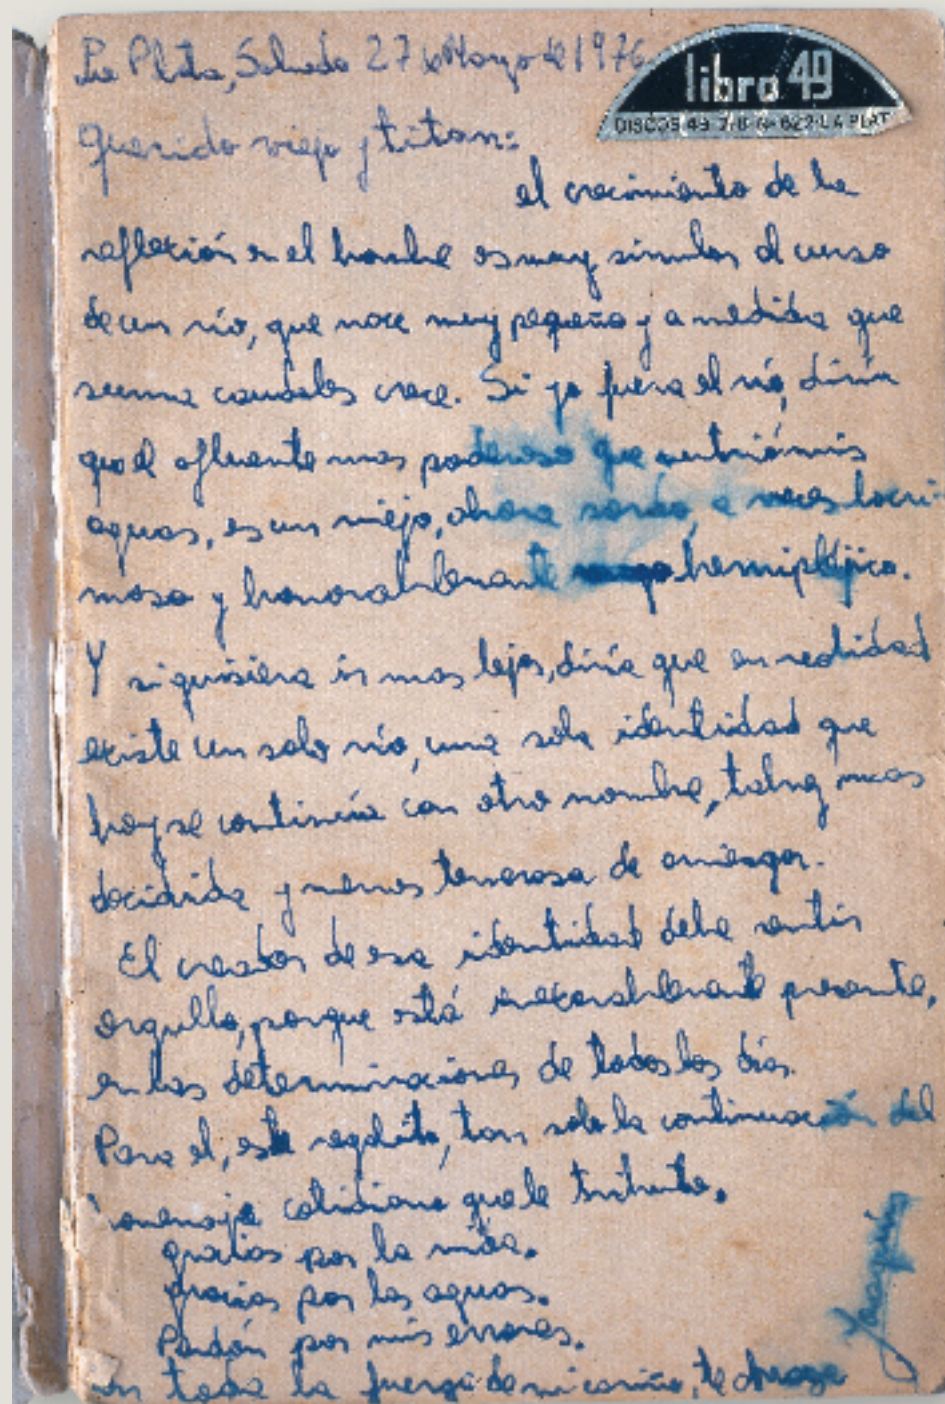 La Plata, Sábado 27 de Mayo de 1976
libro 49
DISCOS 49 7/8 Nº 622-LA PLATA
Querido viejo y titan:
el crecimiento de la
reflexión en el hombre es muy similar al curso
de un río, que nace muy pequeño y a medida que
suma caudales crece. Si yo fuera el río, diría
que el afluente mas poderoso que nutrió mis
aguas, es un viejo, ahora sordo, a veces lacri-
moso y honorablemente hemipléjico.
Y si quisiera ir mas lejos, diría que en realidad
existe un solo río, una sola identidad que
hoy se continúa con otro nombre, talvez mas
decidida y menos temerosa de arriesgar.
El creador de esa identidad debe sentir
orgullo, porque está inexorablemente presente,
en las determinaciones de todos los días.
Para el, este regalito, tan solo la continuación del
homenaje cotidiano que le tributo.
gracias por la vida.
gracias por las aguas.
Perdón por mis errores.
Con toda la fuerza de mi cariño, te abraza
Joaquín